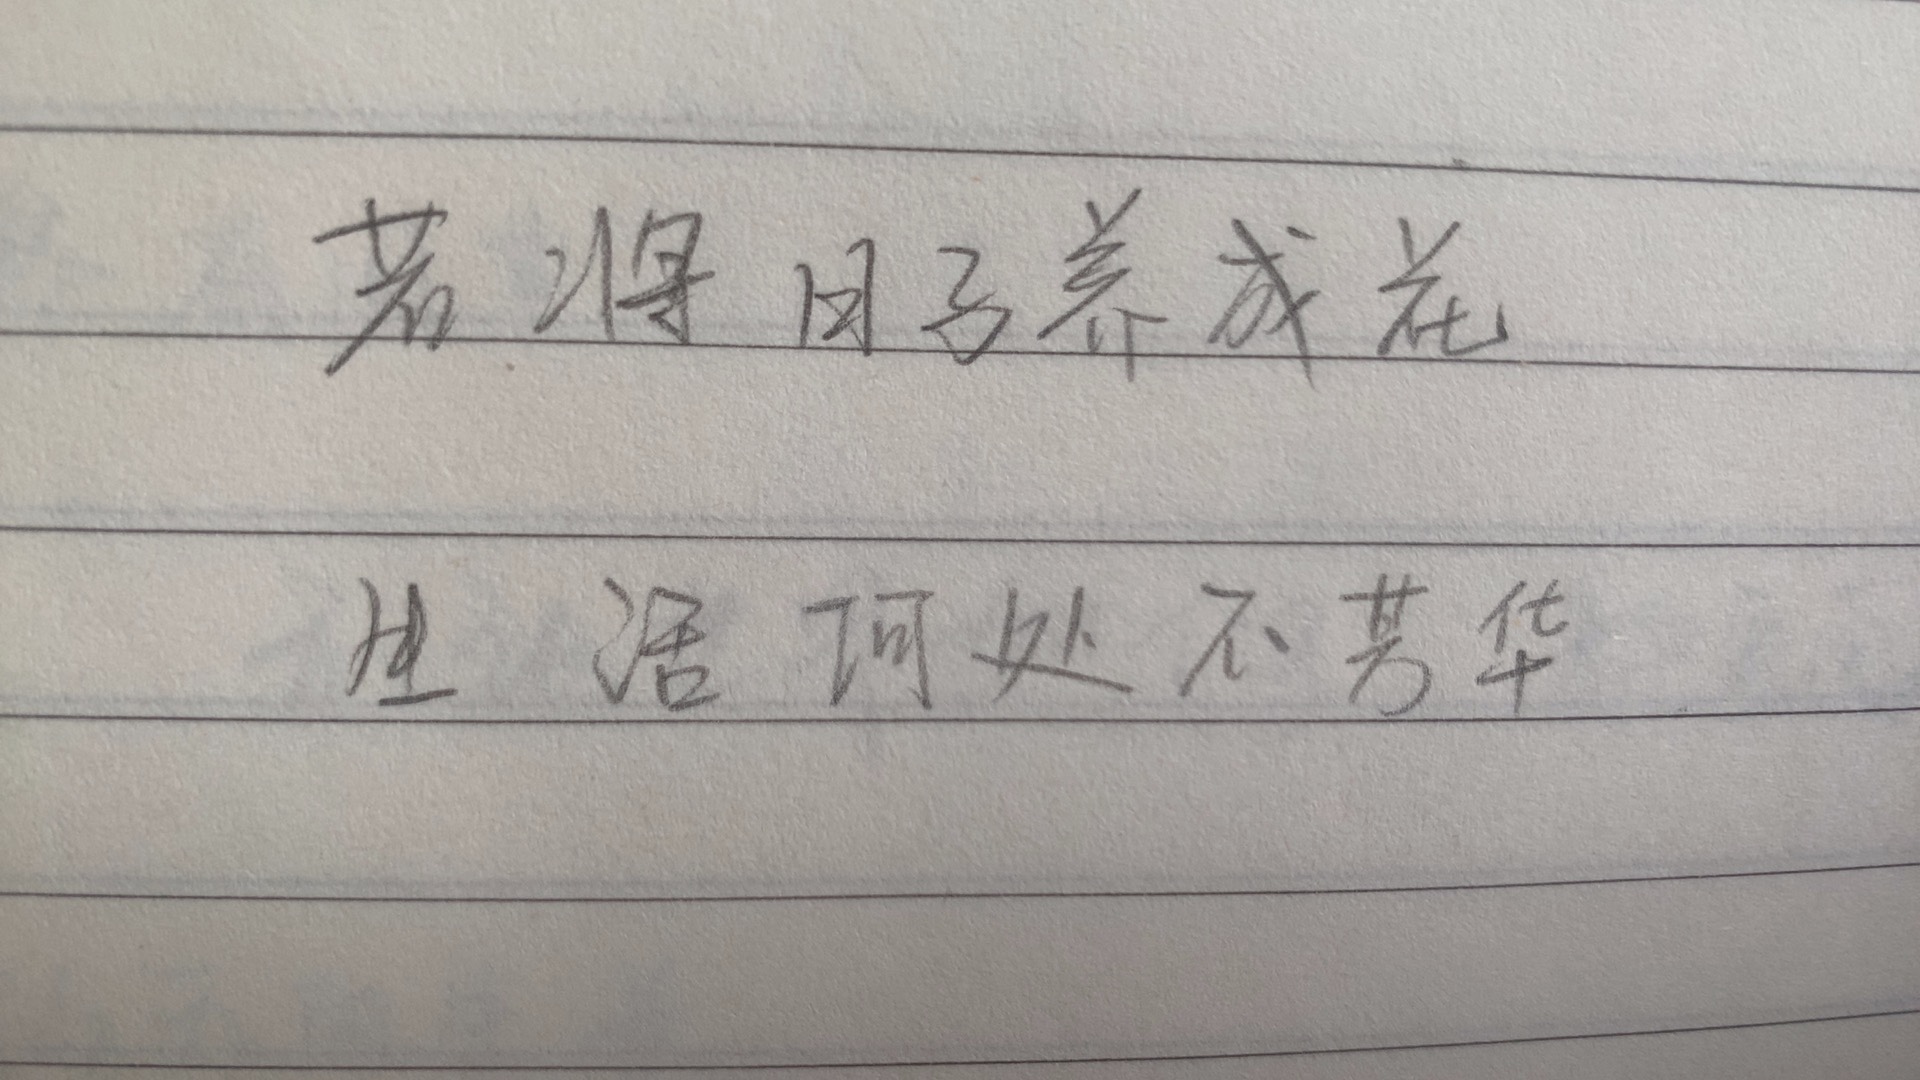 若将日子养成花
生活何处不芳华